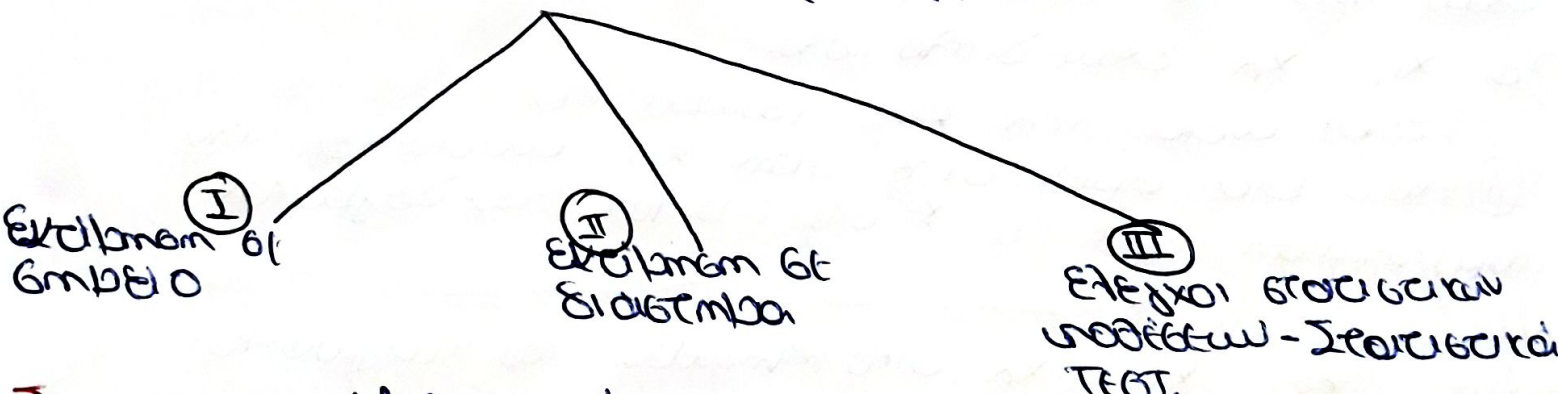 Ⅰ
εκτίμηση σε
σημείο
Ⅱ
εκτίμηση σε
διάστημα
Ⅲ
έλεγχοι στατιστικών
υποθέσεων - Στατιστικά
τεστ.